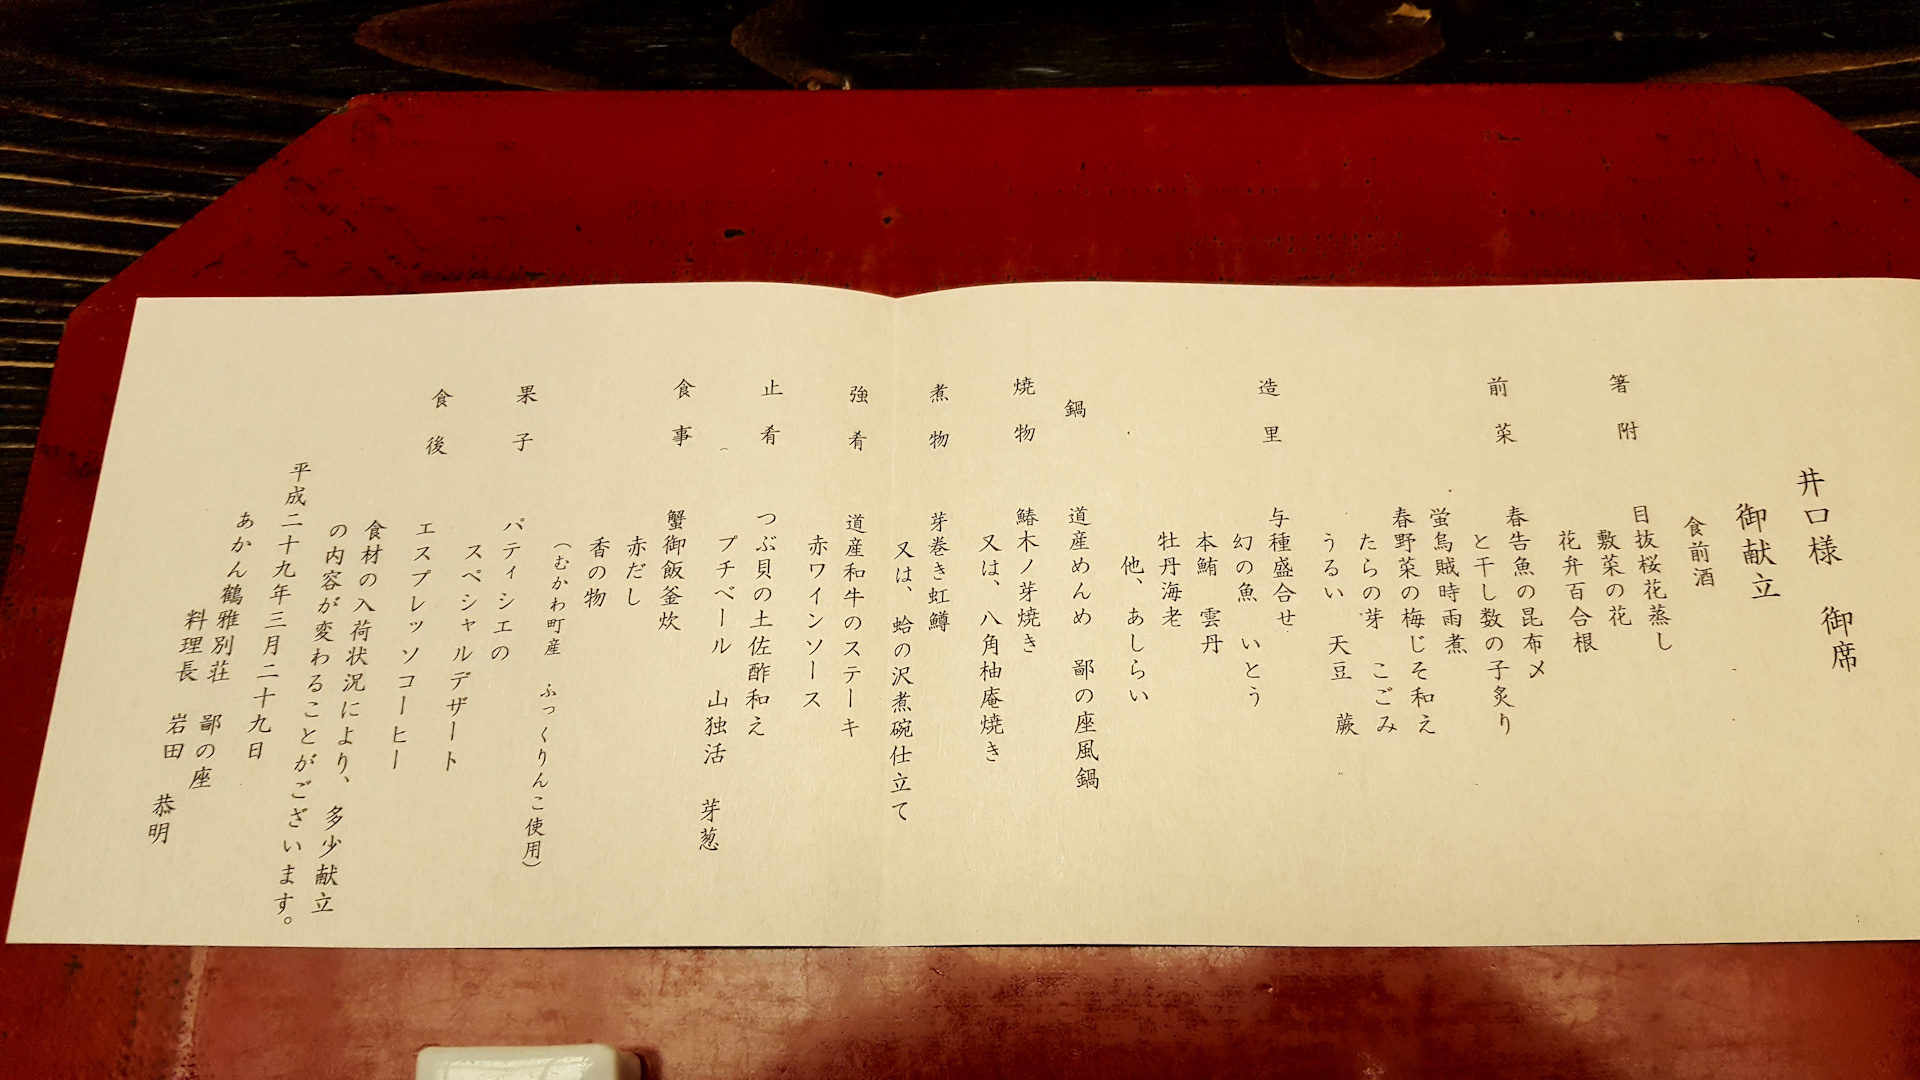 井口様 御席
御献立
食前酒
箸附 目抜桜花蒸し
敷菜の花
花弁百合根
前菜 春告魚の昆布〆
と干し数の子炙り
蛍烏賊時雨煮
春野菜の梅じそ和え
たらの芽 こごみ
うるい 天豆 蕨
造里 与種盛合せ
幻の魚 いとう
本鮪 雲丹
牡丹海老
他、あしらい
鍋 道産めんめ 鄙の座風鍋
焼物 鰆木ノ芽焼き
又は、八角柚庵焼き
煮物 芽巻き虹鱒
又は、蛤の沢煮碗仕立て
強肴 道産和牛のステーキ
赤ワインソース
止肴 つぶ貝の土佐酢和え
プチベール 山独活 芽葱
食事 蟹御飯釜炊
赤だし
香の物
(むかわ町産 ふっくりんこ使用)
果子 パティシエの
スペシャルデザート
食後 エスプレッソコーヒー
食材の入荷状況により、多少献立
の内容が変わることがございます。
平成二十九年三月二十九日
あかん鶴雅別荘 鄙の座
料理長 岩田 恭明